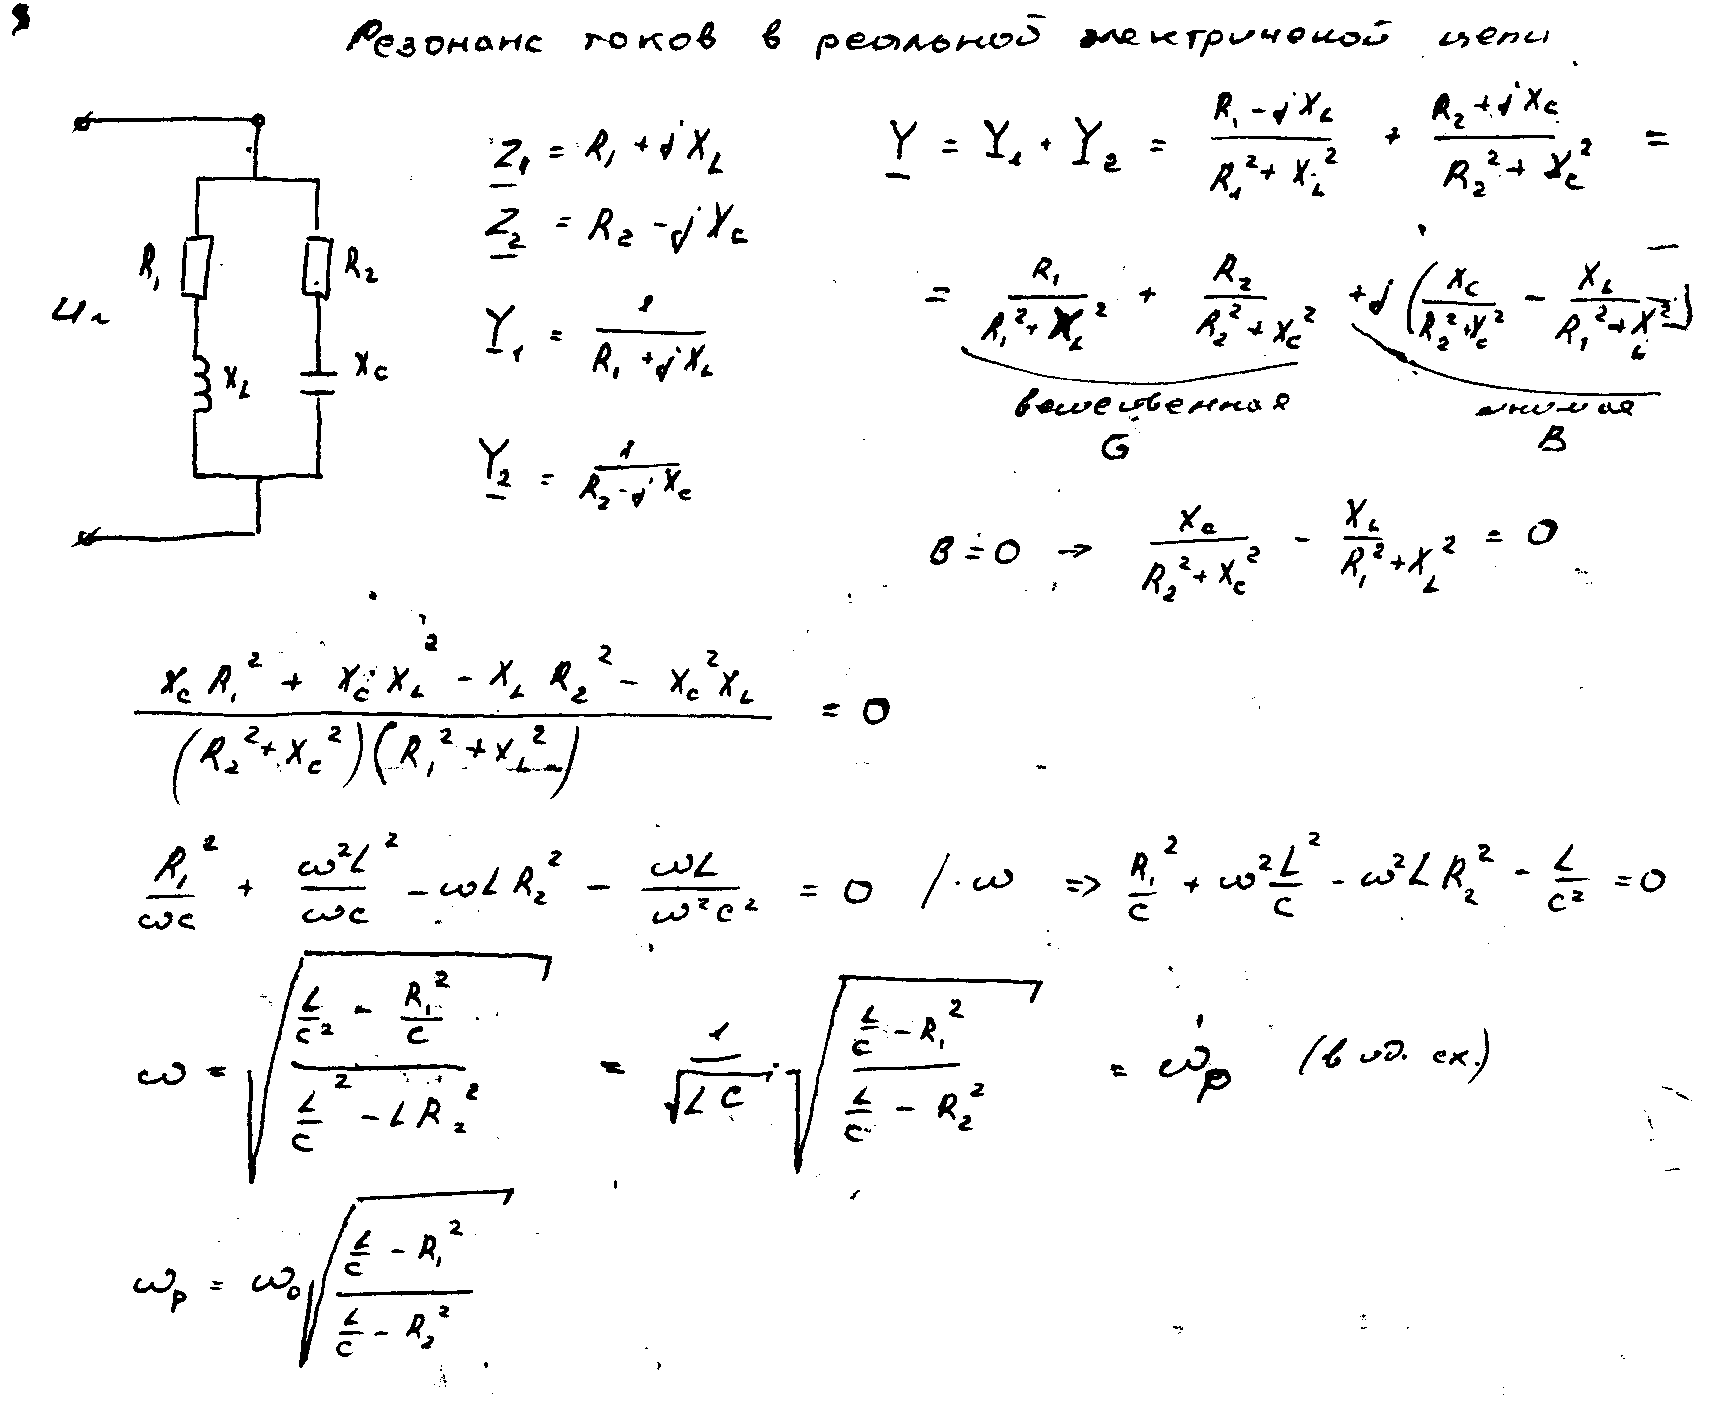 Резонанс токов в реальной электрической цепи
U~
R₁
R₂
X_L
X_C
Z₁ = R₁ + jX_L
Z₂ = R₂ - jX_C
Y₁ = 1/(R₁ + jX_L)
Y₂ = 1/(R₂ - jX_C)
Y = Y₁ + Y₂ = (R₁ - jX_L)/(R₁² + X_L²) + (R₂ + jX_C)/(R₂² + X_C²) =
= R₁/(R₁² + X_L²) + R₂/(R₂² + X_C²) + j(X_C/(R₂² + X_C²) - X_L/(R₁² + X_L²))
вещественная мнимая
G B
B = 0 → X_C/(R₂² + X_C²) - X_L/(R₁² + X_L²) = 0
(X_C R₁² + X_C X_L² - X_L R₂² - X_C² X_L)/((R₂² + X_C²)(R₁² + X_L²)) = 0
R₁²/(ωC) + ω²L²/(ωC) - ωL R₂² - ωL/(ω²C²) = 0 /·ω => R₁²/C + ω²L²/C - ω²L R₂² - L/C² = 0
ω = √((L/C² - R₁²/C)/(L²/C - L R₂²)) = 1/√(LC) · √((L/C - R₁²)/(L/C - R₂²)) = ωₚ (в ид. сх.)
ωₚ = ω₀ √((L/C - R₁²)/(L/C - R₂²))